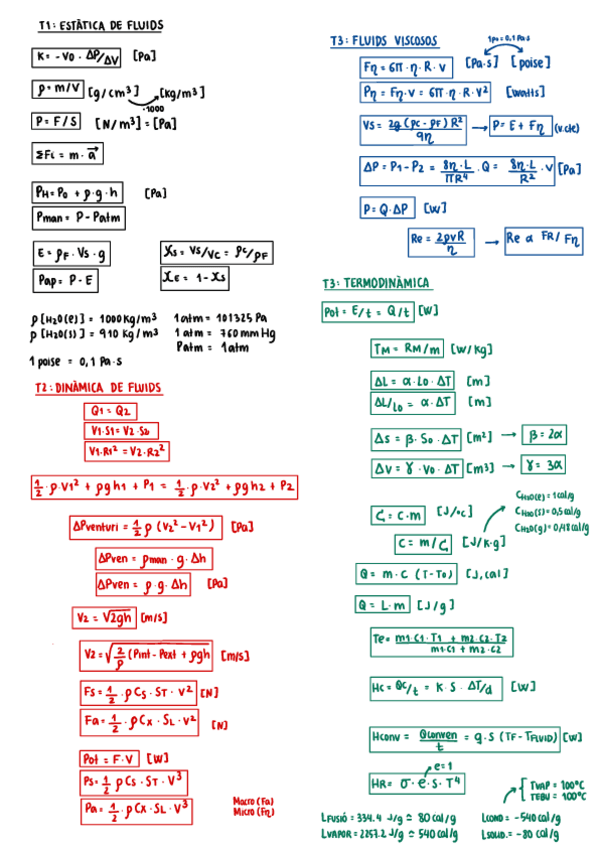 T1: ESTÀTICA DE FLUIDS
K = -V0 · ΔP/ΔV [Pa]
ρ = m/V [g/cm³] [kg/m³]
·1000
P = F/S [N/m²] = [Pa]
ΣFi = m · a⃗
PH = P0 + ρ·g·h [Pa]
Pman = P - Patm
E = ρF · VS · g
Pap = P - E
XS = VS/VC = ρC/ρF
XE = 1 - XS
ρ [H2O(l)] = 1000 Kg/m³ 1 atm = 101325 Pa
ρ [H2O(s)] = 910 Kg/m³ 1 atm = 760 mm Hg
Patm = 1atm
1 poise = 0,1 Pa·s
T2: DINÀMICA DE FLUIDS
Q1 = Q2
V1·S1 = V2·S2
V1·R1² = V2·R2²
1/2 · ρ·V1² + ρgh1 + P1 = 1/2 · ρ·V2² + ρgh2 + P2
ΔPventuri = 1/2 ρ (V2² - V1²) [Pa]
ΔPven = ρman · g · Δh
ΔPven = ρ·g·Δh [Pa]
V2 = √2gh [m/s]
V2 = √2/ρ (Pint - Pext + ρgh) [m/s]
FS = 1/2 · ρ CS · ST · V² [N]
Fa = 1/2 · ρ CX · SL · V² [N]
Pot = F·V [W]
PS = 1/2 ρ CS · ST · V³
Pa = 1/2 · ρ CX · SL · V³
Macro (Fa)
Micro (Fη)
T3: FLUIDS VISCOSOS
1po = 0,1 Pa·s
Fη = 6π · η · R · V [Pa·s] [poise]
Pη = Fη · V = 6π · η · R · V² [watts]
VS = 2g (ρC - ρF) R² / 9η → P = E + Fη (v.cte)
ΔP = P1 - P2 = 8η·L / πR⁴ · Q = 8η·L / R² · V [Pa]
P = Q·ΔP [W]
Re = 2ρVR / η → Re α FR / Fη
T3: TERMODINÀMICA
Pot = E/t = Q/t [W]
TM = RM/m [W/Kg]
ΔL = α·L0·ΔT [m]
ΔL/L0 = α·ΔT [m]
ΔS = β·S0·ΔT [m²] → β = 2α
ΔV = γ·V0·ΔT [m³] → γ = 3α
CH2O(l) = 1cal/g
CH2O(s) = 0,5cal/g
CH2O(g) = 0,48cal/g
ζ = C·m [J/°C]
C = m/ζ [J/K·g]
Q = m·C (T-T0) [J, cal]
Q = L·m [J/g]
Te = m1·C1·T1 + m2·C2·T2 / m1·C1 + m2·C2
HC = QC/t = K·S·ΔT/d [W]
Hconv = Qconven / t = g·S (TF - TFLUID) [W]
e = 1
HR = σ·e·S·T⁴
TVAP = 100°C
TEBU = 100°C
LFUSIÓ = 334.4 J/g ≃ 80 cal/g LCOND = -540 cal/g
LVAPOR = 2257.2 J/g ≃ 540 cal/g LSOLID. = -80 cal/g